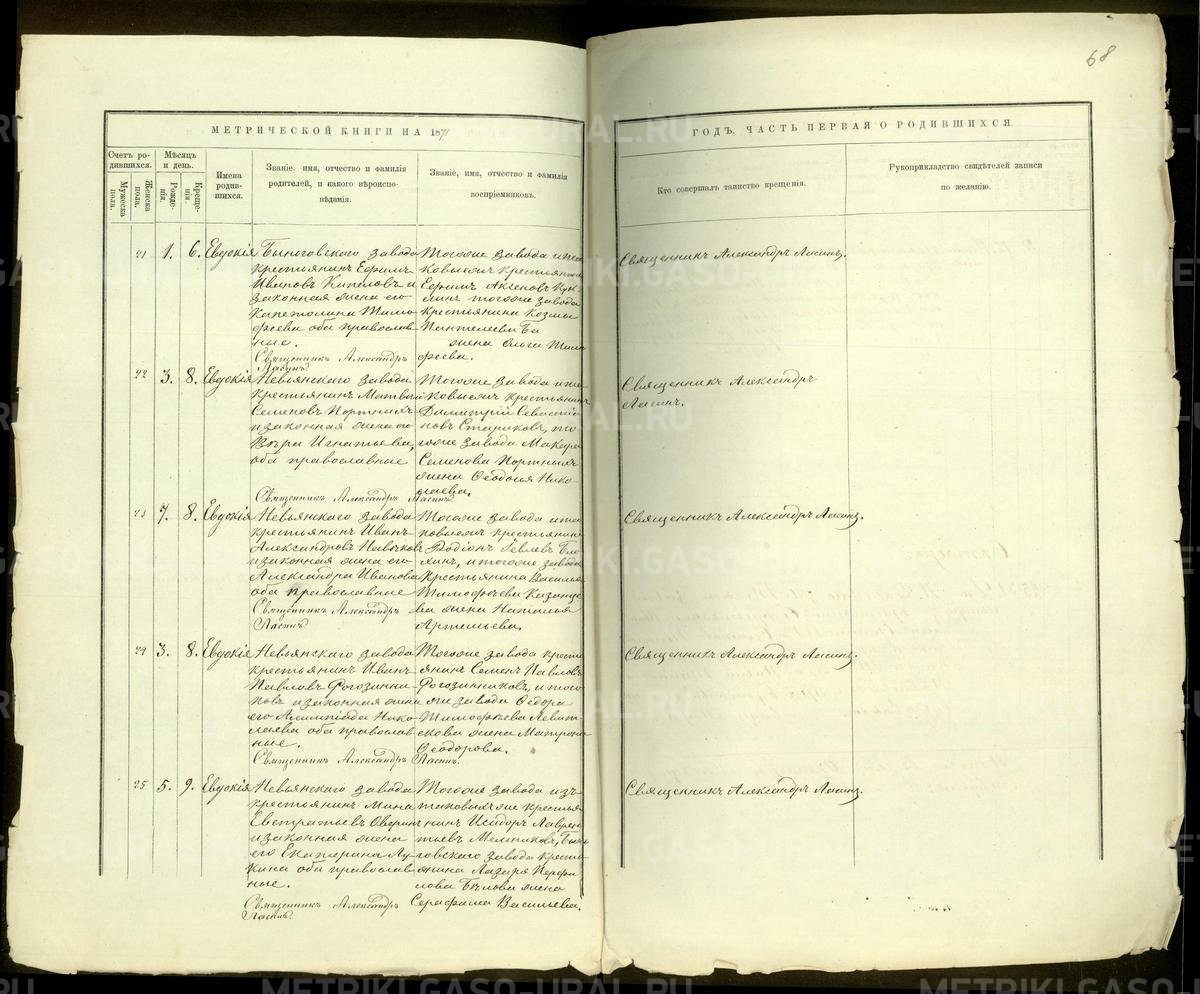 68
МЕТРИЧЕСКОЙ КНИГИ НА 1871
ГОДЪ, ЧАСТЬ ПЕРВАЯ О РОДИВШИХСЯ.
Счетъ родившихся.
Мужеска пола.
Женска пола.
Мѣсяцъ и день.
Рожденія.
Крещенія.
Имена родившихся.
Званіе, имя, отчество и фамилія
родителей, и какого вѣроиспо-
вѣданія.
Званіе, имя, отчество и фамилія
воспріемниковъ.
Кто совершалъ таинство крещенія.
Рукоприкладство свидѣтелей записи
по желанію.
21 1. 6. Евдокія
Быньговскаго завода
крестьянинъ Ефимъ
Ивановъ и
законная жена его
Капетолина Тимо-
феева оба православ-
ные.
Священникъ Александръ
Ласинъ
Тогоже завода и та-
ковыхъ крестьянинъ
Ефимъ Аксеновъ
тогоже завода
крестьянина Козмы
Пантелеева
жена Ольга Тимо-
феева.
Священникъ Александръ Ласинъ.
22 3. 8. Евдокія
Невьянскаго завода
крестьянинъ Матвей
Семеновъ Портныхъ
и законная жена его
Вѣра Игнатьева,
оба православные
Священникъ Александръ Ласинъ
Тогоже завода и та-
ковыхъ крестьянинъ
Димитрій Севастія-
новъ Стариковъ, то-
гоже завода Макара
Семенова Портныхъ
жена Ѳеодосія Нико-
лаева.
Священникъ Александръ
Ласинъ.
23 7. 8. Евдокія
Невьянскаго завода
крестьянинъ Иванъ
Александровъ
и законная жена его
Александра Иванова
оба православные
Священникъ Александръ
Ласинъ
Тогоже завода и та-
ковыхъ крестьянинъ
Родіонъ
и тогоже завода
крестьянина Василья
Тимофеева Казанце-
ва жена Наталья
Артемьева.
Священникъ Александръ Ласинъ.
24 3. 8. Евдокія
Невьянскаго завода
крестьянинъ Иванъ
Павловъ Рогозинни-
ковъ и законная жена
его Алимпіада Нико-
лаева оба православ-
ные.
Священникъ Александръ Ласинъ.
Тогоже завода кресть-
янинъ Семенъ Павловъ
Рогозинниковъ, и того-
же завода Ѳедора
Тимофѣева Левит-
скова жена Матрона
Ѳеодорова.
Священникъ Александръ Ласинъ.
25 5. 9. Евдокія
Невьянскаго завода
крестьянинъ Мина
Евстратьевъ Оверинъ
и законная жена
его Екатерина Лу-
кина оба православ-
ные.
Священникъ Александръ
Ласинъ
Тогоже завода изъ
таковыхъ же крестья-
нинъ Исидоръ Лаврен-
тьевъ Мельниковъ, Бынь-
говскаго завода кресть-
янина Лазаря Перфи-
лова Бѣлова жена
Серафима Васильева.
Священникъ Александръ Ласинъ.
METRIKI.GASO-URAL.RU